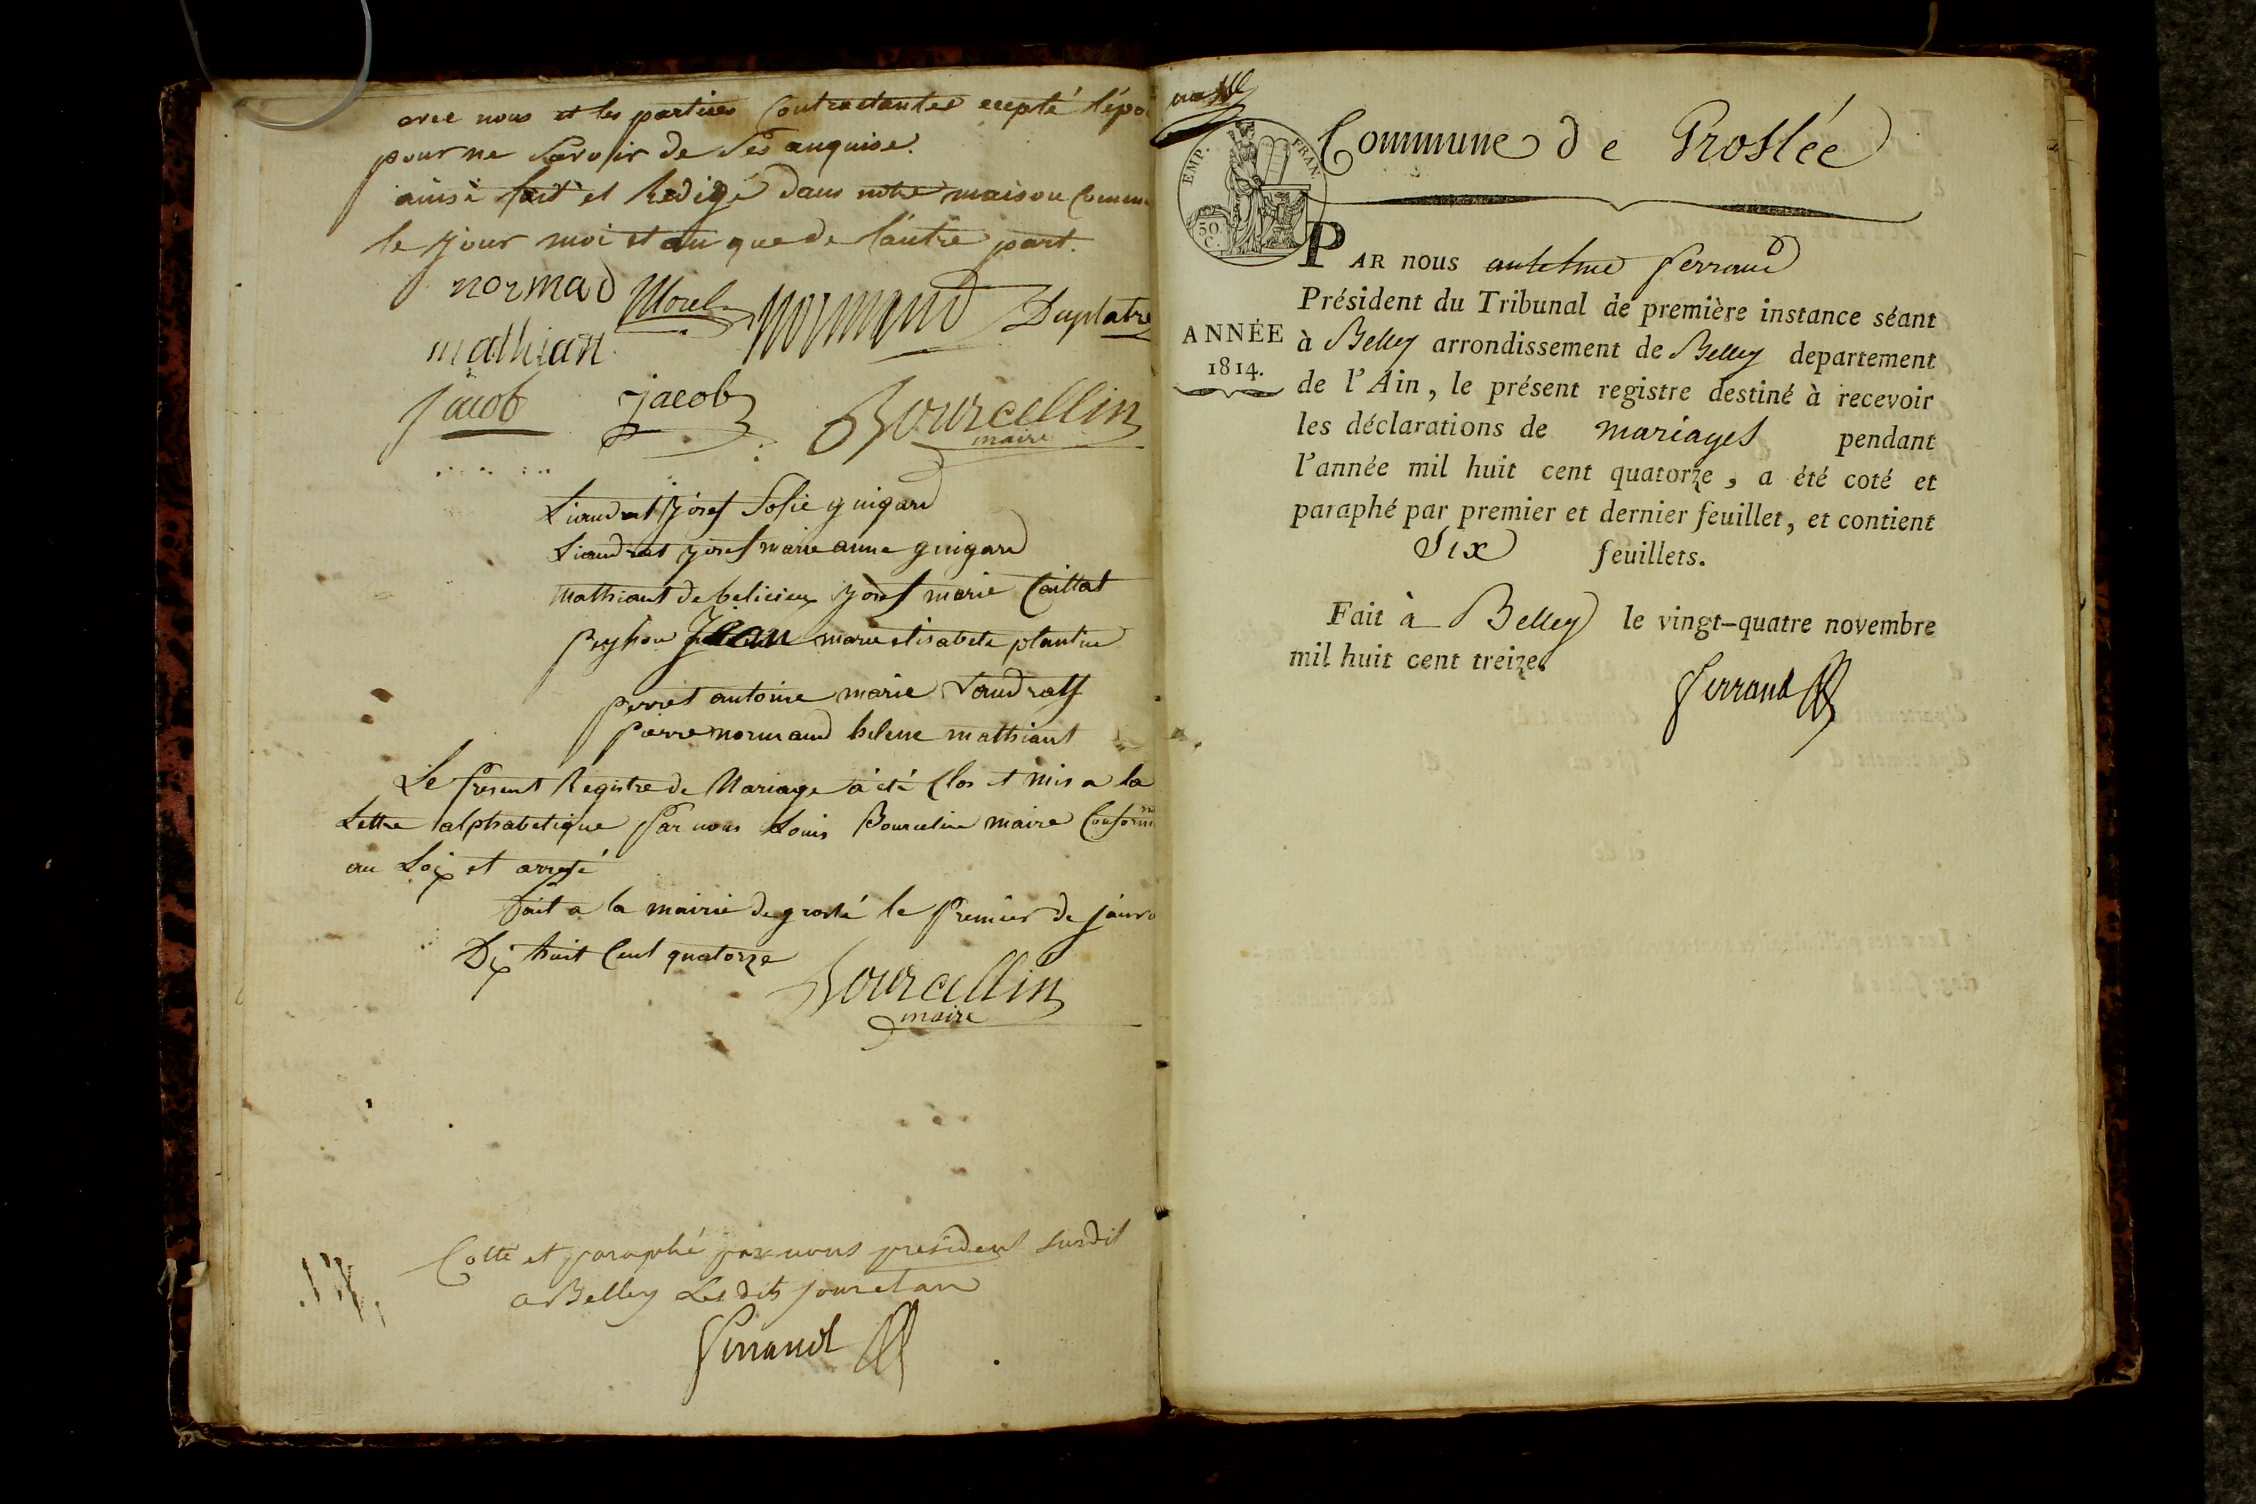 avec nous et les parties Contractantes exepté l'épou
pour ne Savoir de Ses anquise.
ainsi fait et Redigé dans notre maison Commu
le jour moi et an que de l'autre part.
normad Morel normand Duplatre
mathian
jacob jacob Bourcellin
maire
Liaudrat josef Sofie guigard
Liaudrat josef marie anne guigard
Mathiant de belicieux josef marie Caillat
peyson Jean marie elisabete plantin
perret antoine marie Laudrat
pierre normand helene mathiant
Le Present Registre de Mariage a été Clos et Mis a la
Lettre alphabetique Par nous Louis Bourcelin maire Conform
au Loix et arreté
Fait a la mairie de grolé le Premier de janv
Dix huit Cent quatorze
Bourcellin
maire
Cotté et paraphé par nous president susdit
a Belley Les dits jour et an
Ferrand
EMP. FRAN.
50 C.
Commune de Groslée
PAR nous antelme ferrand
Président du Tribunal de première instance séant
à Belley arrondissement de Belley departement
ANNÉE
1814.
de l'Ain, le présent registre destiné à recevoir
les déclarations de mariages pendant
l'année mil huit cent quatorze, a été coté et
paraphé par premier et dernier feuillet, et contient
Six feuillets.
Fait à Belley le vingt-quatre novembre
mil huit cent treize.
ferrand